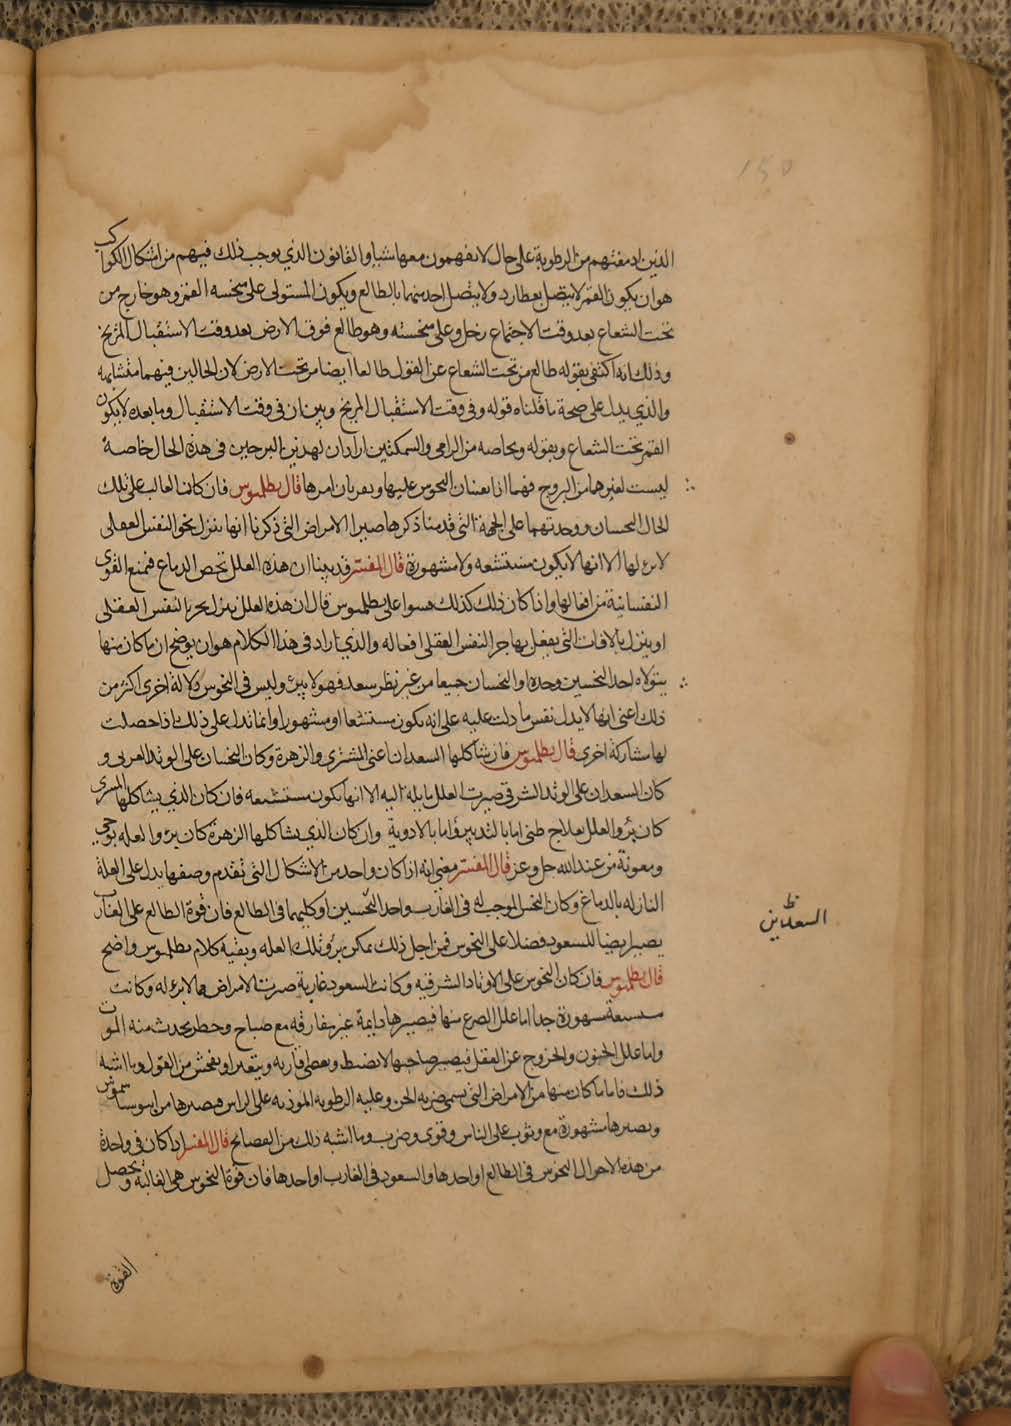 150
الذين ادمغتهم من الرطوبة على حال لا يفهمون معها شيا والقانون الذي يوجب ذلك فيهم من اشكال الكواكب
هو ان يكون القمر لا يتصل بعطارد ولا يتصل احد منهما بالطالع ويكون المستولى على منحسه القمر وهو خارج من
تحت الشعاع بعد وقت الاجتماع زحل وعلى منحسته وهو طالع فوق الارض بعد وقت الاستقبال المريخ
وذلك انه اكتفى بقوله طالع من تحت الشعاع عن القول طالعا ايضا من تحت الارض لان الحالين فيهما متشابهه
والذي يدل على صحة ما قلناه قوله وفى وقت الاستقبال المريخ وبين ان فى وقت الاستقبال وما بعده لا يكون
القمر تحت الشعاع وبقوله وبخاصه من الرامى والسمكتين اراد ان لهذين البرجين فى هذه الحال خاصة
ليست لغيرهما من البروج فهما اذا يعينان النحوس عليها ويقويان امرها قال بطلميوس فان كانت الغالب على تلك
الحال النحسان ووحدتهما على الجهة التى قدمنا ذكرها صيرا الامراض التى ذكرنا انها تنزل بحو النفس العقلى
لا برء لها الا انها لا يكون مستشنعه ولا مشهورة قال المفسر قد بينا ان هذه العلل تخص الدماغ فتمنع القوى
النفسانية من افعالها واذا كان ذلك كذلك فسوا على بطلميوس قال ان هذه العلل تنزل بجزء النفس العقلى
او ينزل بالافات التى يفعل بها جزء النفس العقلى افعاله والذي اراد فى هذا الكلام هو ان يوضح ان ما كان منها
يتولاه احد النحسين وحده او النحسان جميعا من غير نظر سعد فهو لا يبرء وليس فى النحوس دلالة اخرى اكثر من
ذلك اعنى انها لا يدل نفس ما دلت عليه على انه يكون مستشنعا او مشهورا وانما تدل على ذلك اذا حصلت
لها مشاركة اخرى قال بطلميوس فان شاكلها السعدان اعنى المشترى والزهرة وكان النحسان على الوتد الغربى و
كان السعدان على الوتد الشرقى صيرت العلل مايله اليه الا انها يكون مستشنعه فان كان الذي يشاكلها المشترى
كان برؤ العلل بعلاج طبى اما بالتدبير واما بالادوية وان كان الذي يشاكلها الزهرة كان برؤ العله بوحي
ومعونة من عند الله جل وعز قال المفسر معنى انه اذا كان واحد من الاشكال التى تقدم وصفها يدل على العلة
النازله بالدماغ وكان النحس الموجب له فى الغارب واحد النحسين او كليهما فى الطالع فان قوة الطالع على الغارب
يصير ايضا للسعود فضلا على النحوس فمن اجل ذلك يمكن برؤ تلك العله وبقيه كلام بطلميوس واضح
السعدين
ظ
قال بطلميوس فان كان النحوس على الاوتاد الشرقيه وكانت السعود غاربة صيرت الامراض مما لا برء له وكانت
مستشنعة مشهورة جدا اما علل الصرع منها فيصيرها دايمة غير مفارقه مع صياح وخطر يحدث منه الموت
واما علل الجنون والخروج عن العقل فيصير صاحبها لا يضبط ويعصى قاربه ويتعرا ويفحش من القول وما اشبه
ذلك فاما ما كان منها من الامراض التى يسمى ضربه الجن وغلبه الرطوبه الموذيه على الراس فيصيرها من
ويصيرها مشهورة مع وثوب على الناس وقوى وضرب وما اشبه ذلك من الفضائح قال المفسر اذا كان فى واحدة
من هذه الاحوال النحوس فى الطالع او احدها والسعود فى الغارب او احدها فان قوة النحوس هى الغالبه ويحصل
القوة